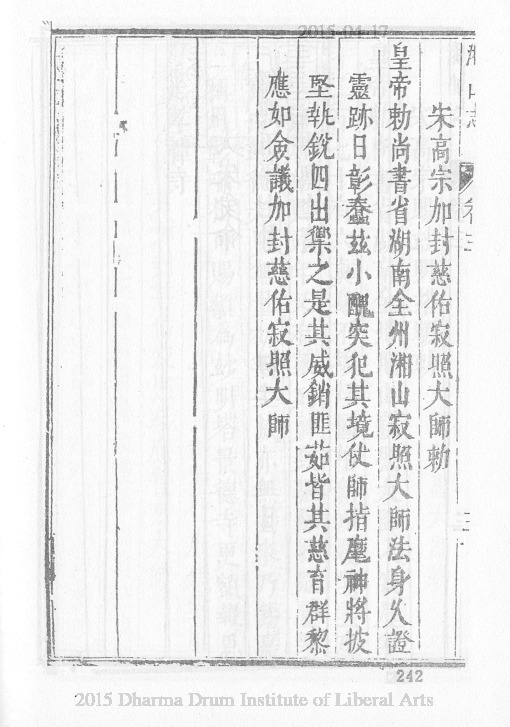 2015-04-17
湘山志 卷三 三
宋高宗加封慈佑寂照大師勅
皇帝勅尚書省湖南全州湘山寂照大師法身久證
靈跡日彰蠢茲小醜突犯其境仗師指麾神將披
堅執銳四出禦之是其威銷匪茹皆其慈育群黎
應如僉議加封慈佑寂照大師
242
2015 Dharma Drum Institute of Liberal Arts